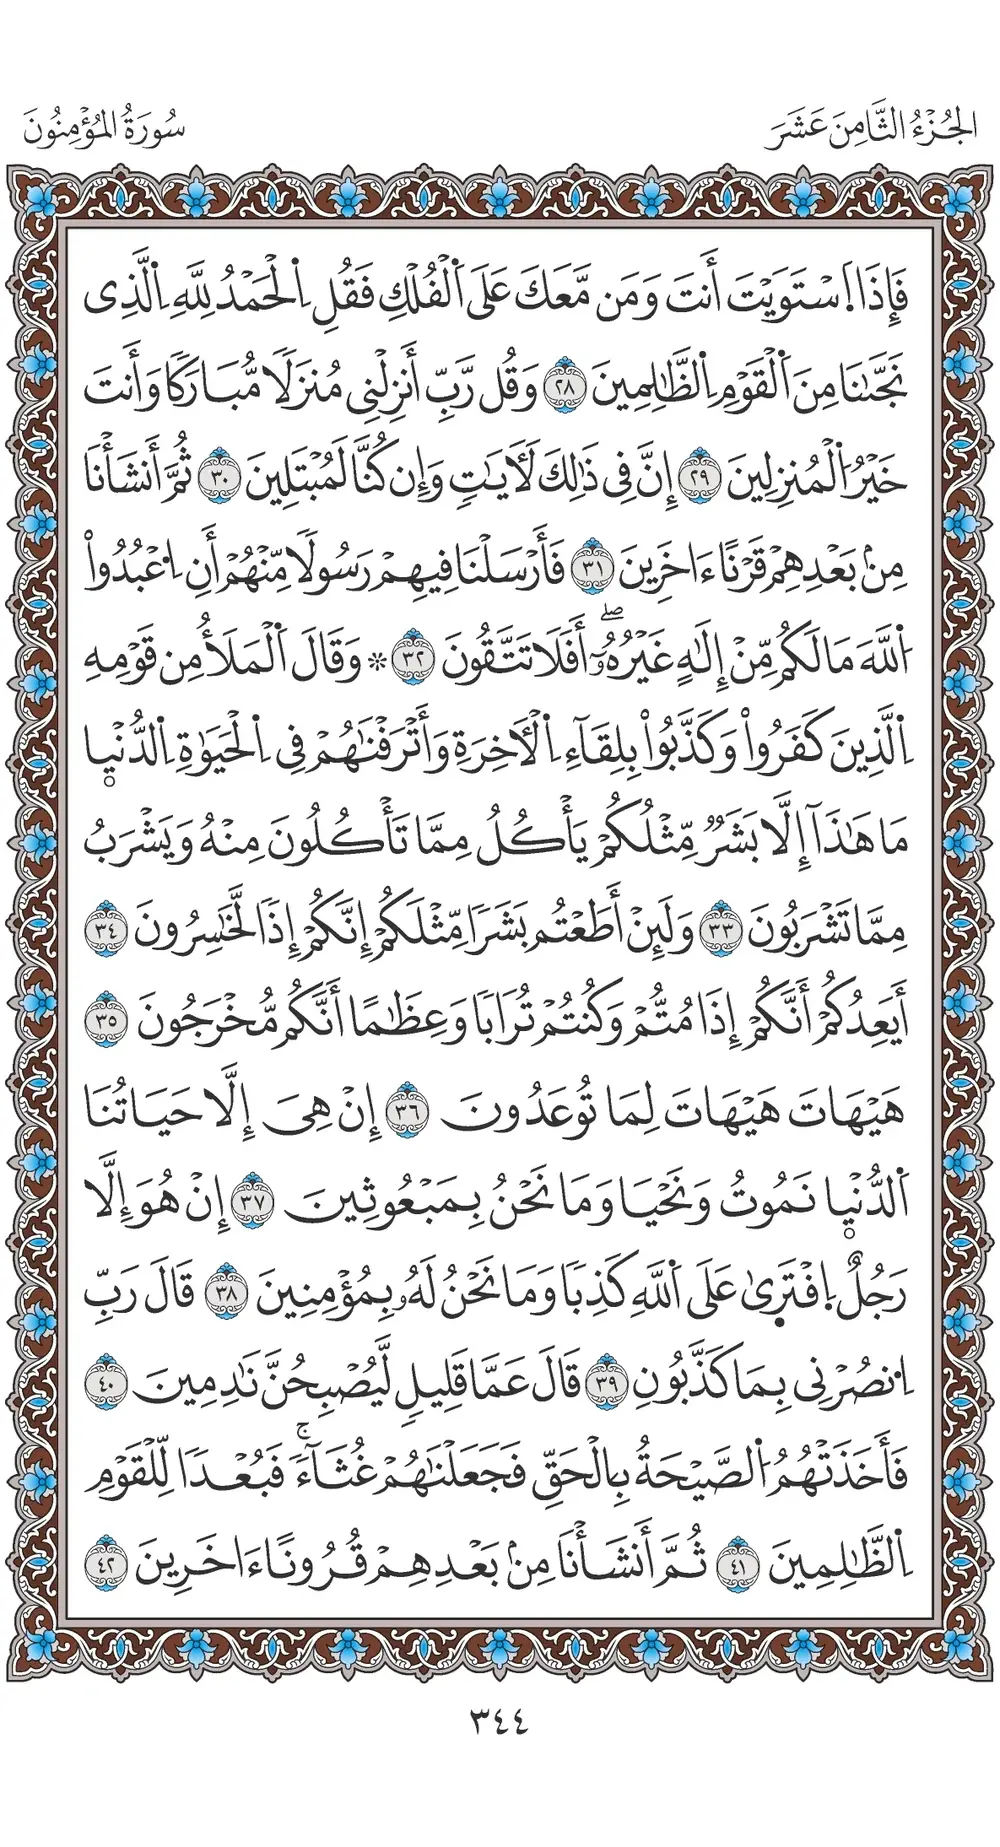 الجُزْءُ الثَّامِنَ عَشَرَ
سُورَةُ المُؤْمِنُونَ
فَإِذَا اَ۪سْتَوَيْتَ أَنتَ وَمَن مَّعَكَ عَلَى اَ۬لْفُلْكِ فَقُلِ اِ۬لْحَمْدُ لِلَّهِ اِ۬لَّذِى
نَجَّىٰنَا مِنَ اَ۬لْقَوْمِ اِ۬لظَّٰلِمِينَ ٢٨ وَقُل رَّبِّ أَنزِلْنِى مُنزَلًا مُّبَارَكًا وَأَنتَ
خَيْرُ اُ۬لْمُنزِلِينَ ٢٩ إِنَّ فِى ذَٰلِكَ لَأٓيَٰتٍ وَإِن كُنَّا لَمُبْتَلِينَ ٣٠ ثُمَّ أَنشَأْنَا
مِنۢ بَعْدِهِمْ قَرْنًا ءَاخَرِينَ ٣١ فَأَرْسَلْنَا فِيهِمْ رَسُولًا مِّنْهُمْ أَنِ اِ۟عْبُدُواْ
اُ۬للَّهَ مَا لَكُم مِّنْ إِلَٰهٍ غَيْرُهُۥٓۖ أَفَلَا تَتَّقُونَ ٣٢ * وَقَالَ اَ۬لْمَلَأُ مِن قَوْمِهِ
اِ۬لَّذِينَ كَفَرُواْ وَكَذَّبُواْ بِلِقَآءِ اِ۬لْأٓخِرَةِ وَأَتْرَفْنَٰهُمْ فِى اِ۬لْحَيَوٰةِ اِ۬لدُّنْي۪ا
مَا هَٰذَآ إِلَّا بَشَرٌ مِّثْلُكُمْ يَأْكُلُ مِمَّا تَأْكُلُونَ مِنْهُ وَيَشْرَبُ
مِمَّا تَشْرَبُونَ ٣٣ وَلَئِنْ أَطَعْتُم بَشَرًا مِّثْلَكُمْ إِنَّكُمْ إِذًا لَّخَٰسِرُونَ ٣٤
أَيَعِدُكُمْ أَنَّكُمْ إِذَا مُتُّمْ وَكُنتُمْ تُرَابًا وَعِظَٰمًا أَنَّكُم مُّخْرَجُونَ ٣٥
هَيْهَاتَ هَيْهَاتَ لِمَا تُوعَدُونَ ٣٦ إِنْ هِىَ إِلَّا حَيَاتُنَا
اَ۬لدُّنْي۪ا نَمُوتُ وَنَحْيَا وَمَا نَحْنُ بِمَبْعُوثِينَ ٣٧ إِنْ هُوَ إِلَّا
رَجُلٌ اِ۪فْتَر۪ىٰ عَلَى اَ۬للَّهِ كَذِبًا وَمَا نَحْنُ لَهُۥ بِمُؤْمِنِينَ ٣٨ قَالَ رَبِّ
اِ۟نصُرْنِى بِمَا كَذَّبُونِ ٣٩ قَالَ عَمَّا قَلِيلٍ لَّيُصْبِحُنَّ نَٰدِمِينَ ٤٠
فَأَخَذَتْهُمُ اُ۬لصَّيْحَةُ بِالْحَقِّ فَجَعَلْنَٰهُمْ غُثَآءًۚ فَبُعْدًا لِّلْقَوْمِ
اِ۬لظَّٰلِمِينَ ٤١ ثُمَّ أَنشَأْنَا مِنۢ بَعْدِهِمْ قُرُونًا ءَاخَرِينَ ٤٢
٣٤٤